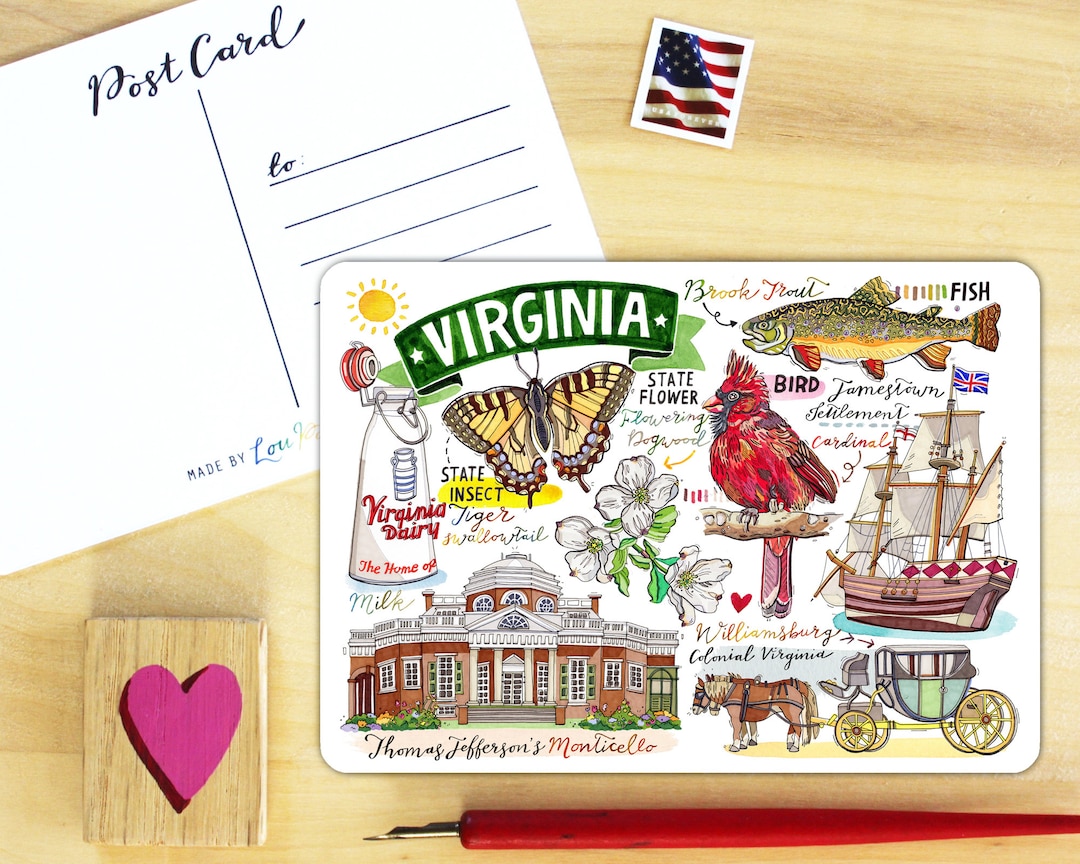 Post Card
to:
MADE BY Lou
VIRGINIA
Brook Trout
FISH
STATE
FLOWER
Flowering
Dogwood
BIRD
Jamestown
Settlement
Cardinal
STATE
INSECT
Tiger
Swallowtail
Virginia
Dairy
The Home of
Milk
Williamsburg
Colonial Virginia
Thomas Jefferson's Monticello